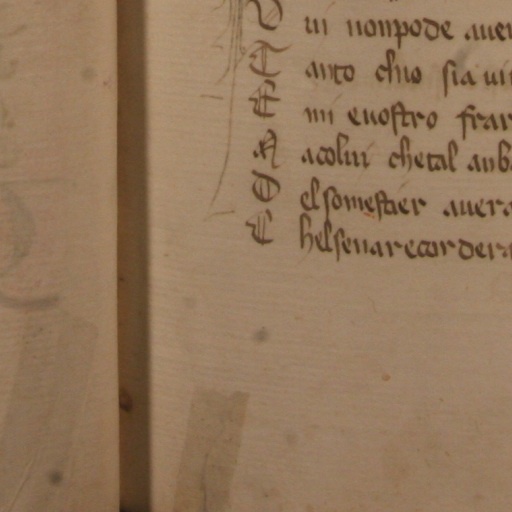 V ui nonpode aver
T anto chno sia ui
E mi enostro frar
A acolui chetal anb
D elsomestier avera
C helsenarecordera